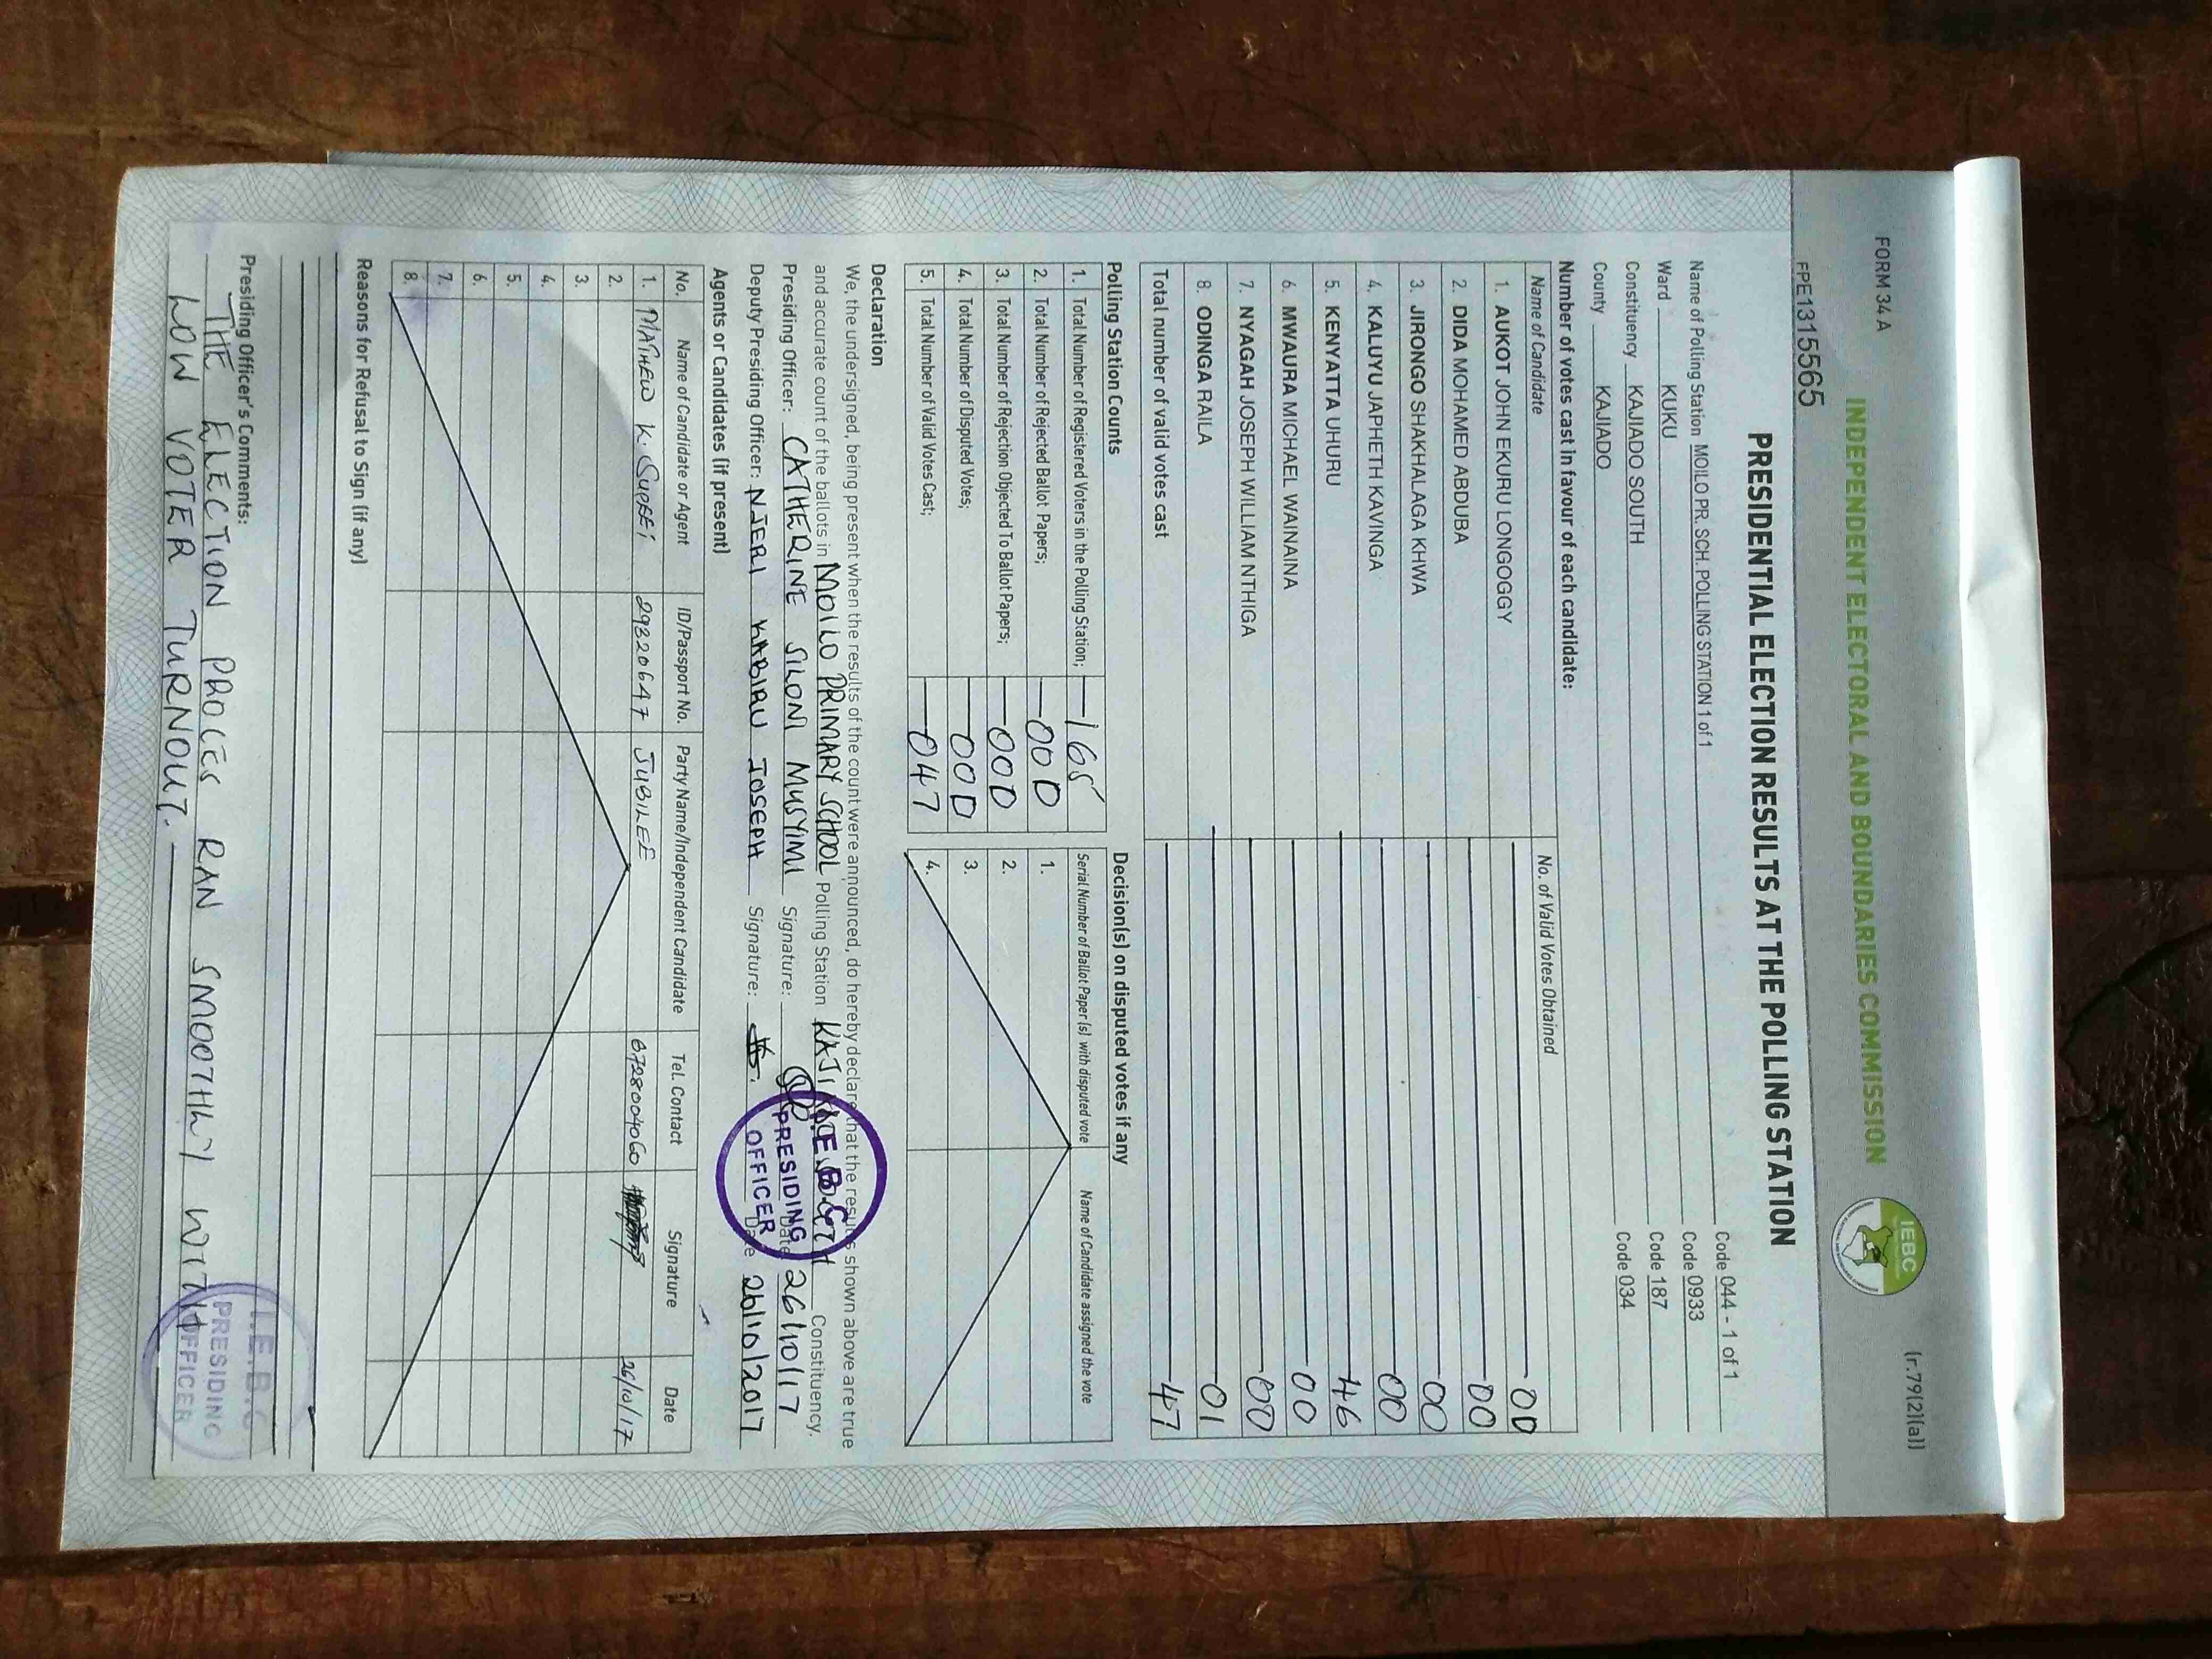 FORM 34 A
(r.79(2)(a))
INDEPENDENT ELECTORAL AND BOUNDARIES COMMISSION
IEBC
FPE1315565
PRESIDENTIAL ELECTION RESULTS AT THE POLLING STATION
Name of Polling Station MOILO PR. SCH. POLLING STATION 1 of 1 Code 044 - 1 of 1
Ward KUKU Code 0933
Constituency KAJIADO SOUTH Code 187
County KAJIADO Code 034
Number of votes cast in favour of each candidate:
Name of Candidate No. of Valid Votes Obtained
1. AUKOT JOHN EKURU LONGOGGY 00
2. DIDA MOHAMED ABDUBA 00
3. JIRONGO SHAKHALAGA KHWA 00
4. KALUYU JAPHETH KAVINGA 00
5. KENYATTA UHURU 46
6. MWAURA MICHAEL WAINAINA 00
7. NYAGAH JOSEPH WILLIAM NTHIGA 00
8. ODINGA RAILA 01
Total number of valid votes cast 47
Polling Station Counts
1. Total Number of Registered Voters in the Polling Station; 165
2. Total Number of Rejected Ballot Papers; 000
3. Total Number of Rejection Objected To Ballot Papers; 000
4. Total Number of Disputed Votes; 000
5. Total Number of Valid Votes Cast; 047
Decision(s) on disputed votes if any
Serial Number of Ballot Paper (s) with disputed vote Name of Candidate assigned the vote
1.
2.
3.
4.
Declaration
We, the undersigned, being present when the results of the count were announced, do hereby declare that the results shown above are true
and accurate count of the ballots in MOILO PRIMARY SCHOOL Polling Station Constituency.
Presiding Officer: CATHERINE SILONI MUSYIMI Signature: Date 26/10/17
Deputy Presiding Officer: NJERI KABIRU JOSEPH Signature: Date 26/10/2017
I.E.B.C
PRESIDING
OFFICER
Agents or Candidates (if present)
No. Name of Candidate or Agent ID/Passport No. Party Name/Independent Candidate Tel. Contact Signature Date
1. MATHEW K. 29320647 JUBILEE 0728004060 26/10/17
2.
3.
4.
5.
6.
7.
8.
Reasons for Refusal to Sign (if any)
Presiding Officer's Comments:
THE ELECTION PROCES RAN SMOOTHLY WITH
LOW VOTER TURNOUT.
I.E.B.C
PRESIDING
OFFICER